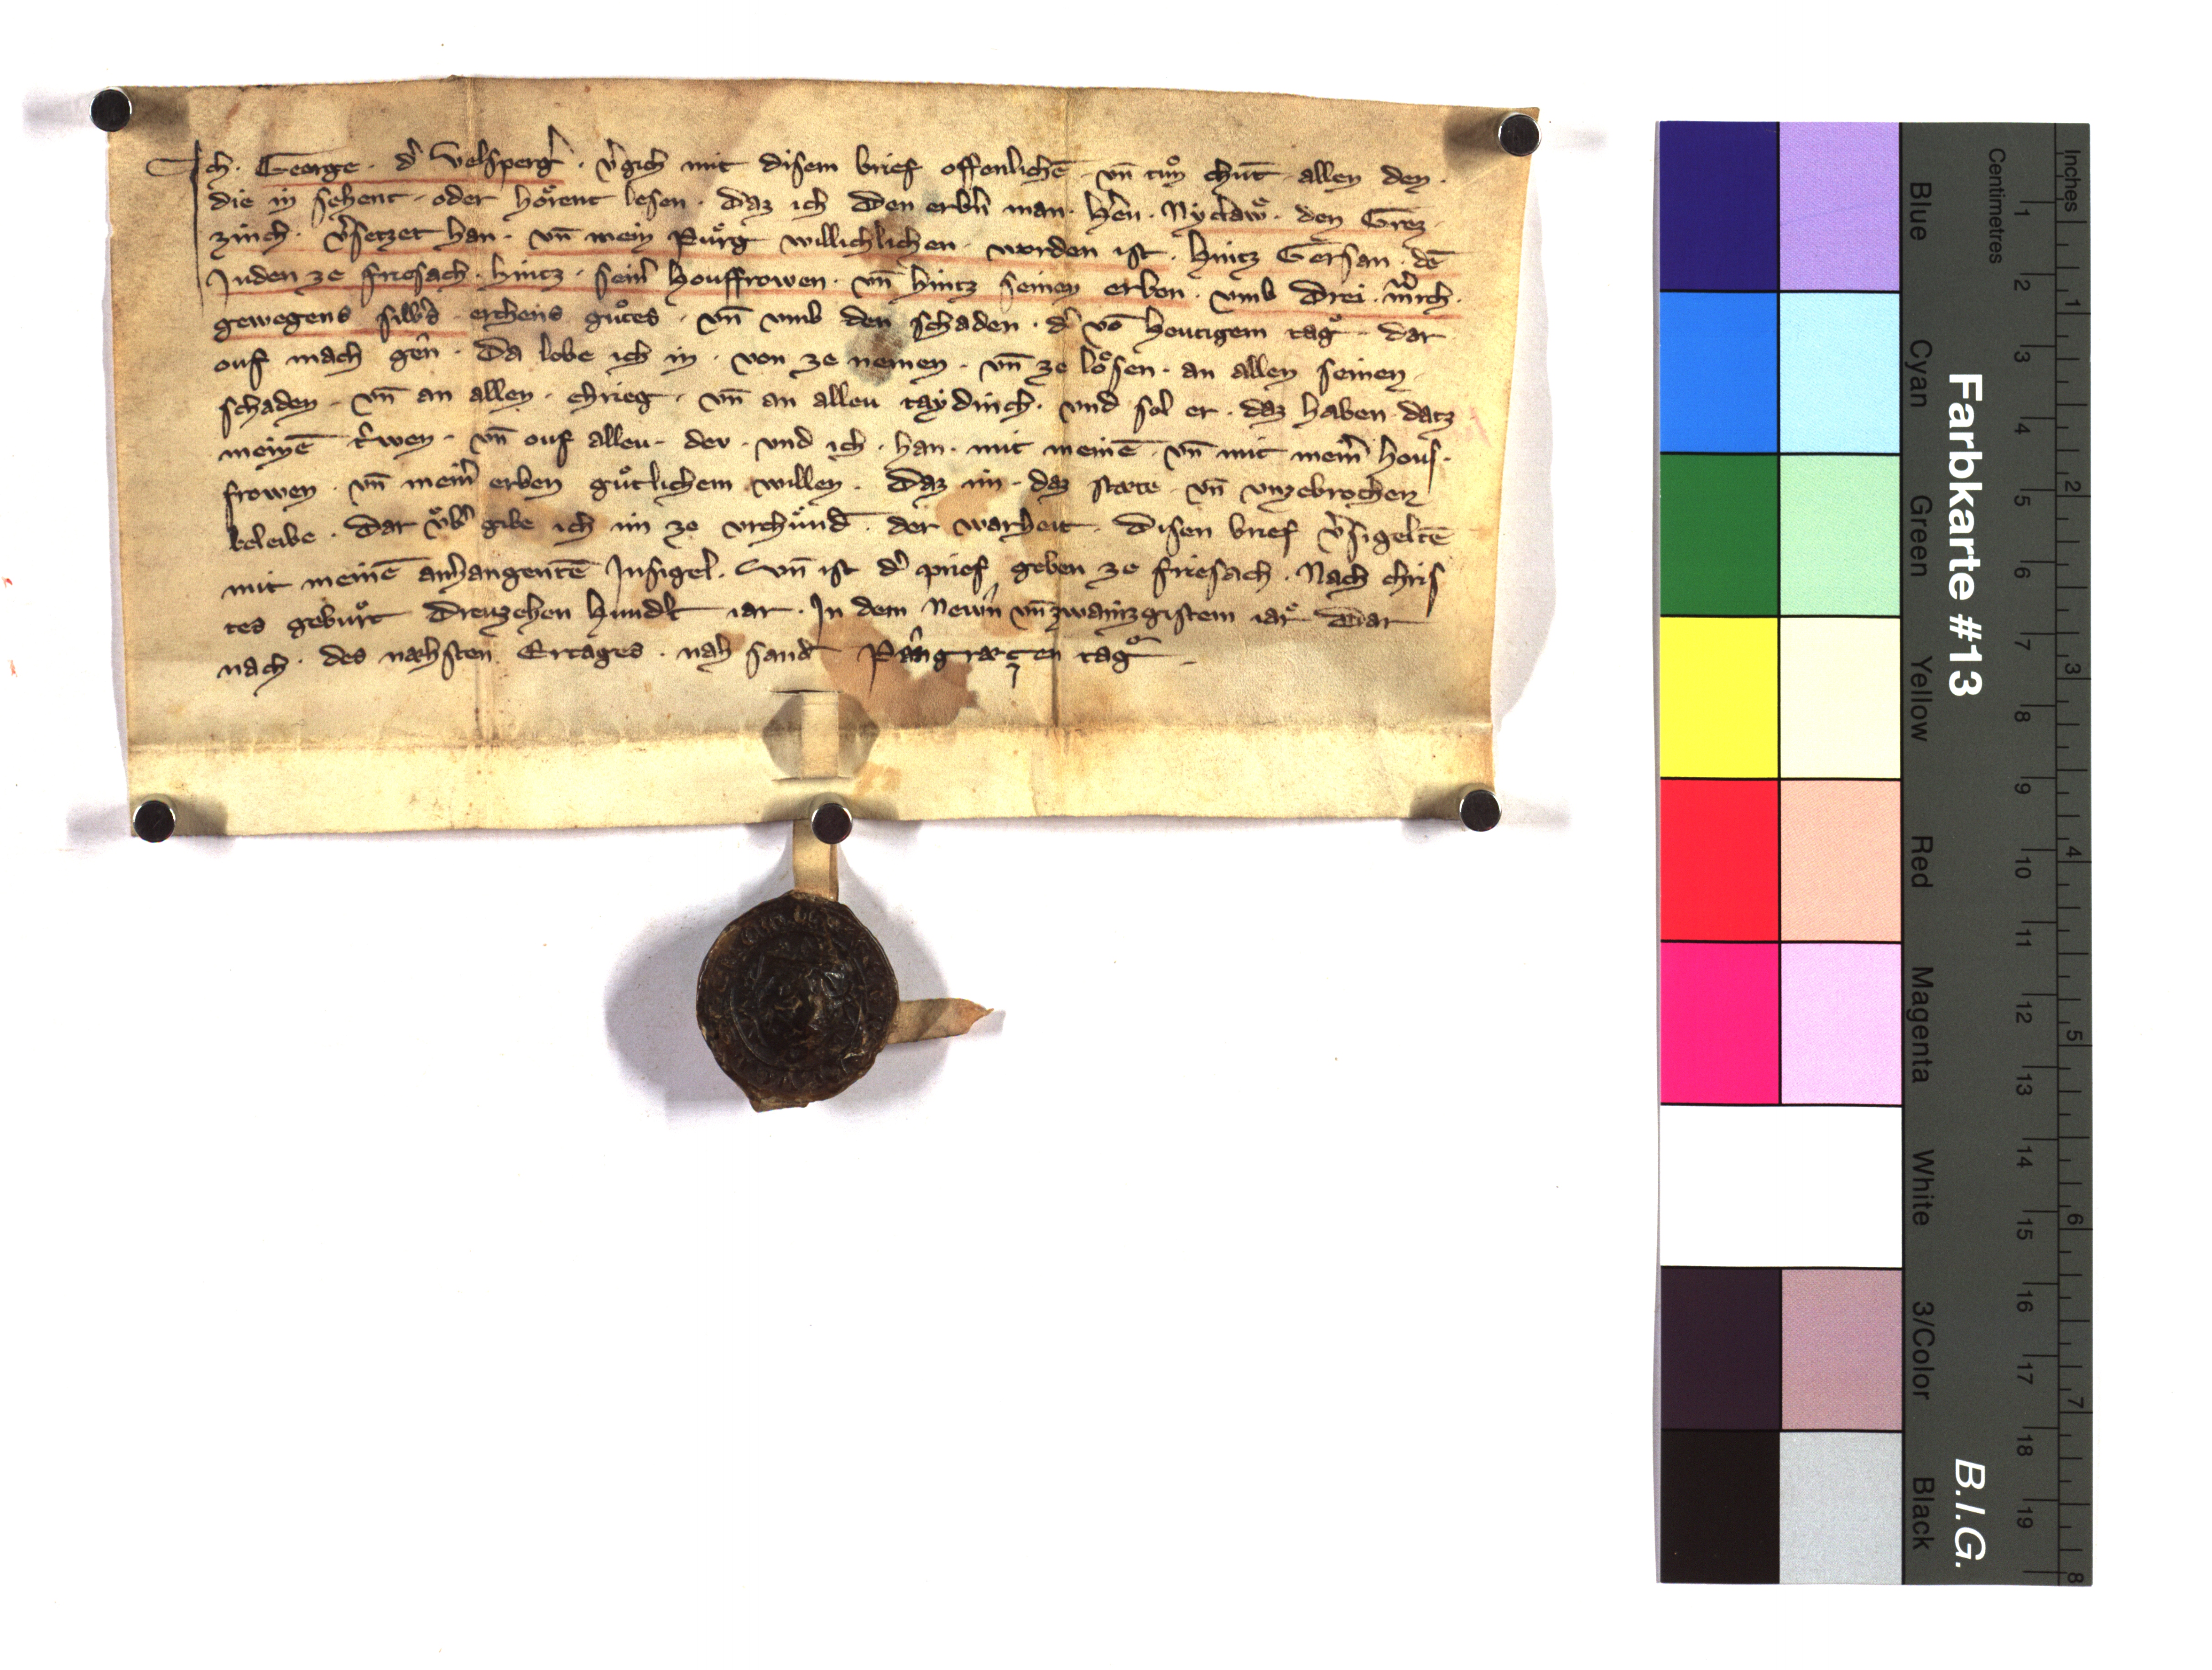 Ich · George · d͛ Velsperg͛ · v͛gich mit disem brief offenlichē · vn̄ tuͦn chūt · allen den ·
die in sehent · oder hoͤrent lesen · daz ich den erbn͛ man · h͛en · Nyclawͤ · den Grez
zinch · v͛setzet han · vn̄ mein Puͤrg willichlichen · worden ist · hintz Gersan · dē
Juden ze friesach · hintz · sein͛ houffrowen · vn̄ hintz seinen erben · vmb drei · m͛rch ·
gewegens silb͛s · erchens guͦtes · vn̄ vmb den schaden · d͛ vō heutigem tagͤ · dar
ouf mach gen̄ · Da lobe ich in · von ze nemen · vn̄ ze loͤsen · an allen seinen
schaden · vn̄ an allen · chrieg · vn̄ an alleu taydinch · und sol er · daz haben · datz
meinē · t͛wen · vn̄ ouf alleu · dev · und ich · han · mit meinē · vn̄ mit mein͛ hous ·
frowen · vn̄ mein͛ erben guͤtlichem willen · Daz im · daz stæte · vn̄ vnzebrochen
beleibe · dar vͤb͛ gibe ich im ze vrchuͤnd̄ · der warheit · disen brief v͛sigeltē
mit meinē anhangentē Insigel · Vn̄ ist d͛ prief geben ze friesach · Nach chris
tes gebuͤrt dreuzehen hund͛t iar · In dem Newn͛ vn̄zwainzgistem iarͤ Dar
nach · des næhsten Ertages · nah sand͛ Pangræczen tagͤ
Farbkarte #13
B.I.G.
Inches 1 2 3 4 5 6 7 8
Centimetres 1 2 3 4 5 6 7 8 9 10 11 12 13 14 15 16 17 18 19
Blue
Cyan
Green
Yellow
Red
Magenta
White
3/Color
Black